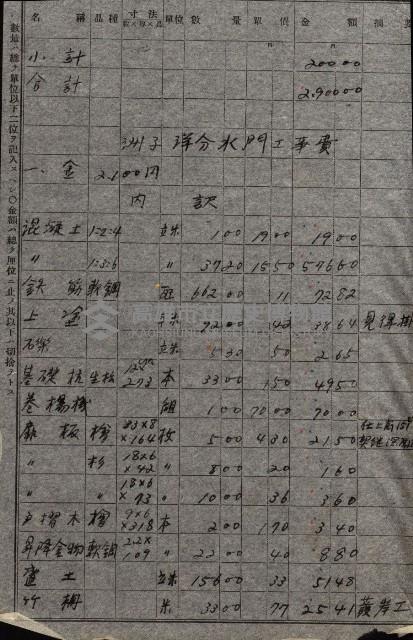 名稱 品種 寸法 單位 數量 單價 金額 摘要
小計 20000
合計 290000
洲子洋分水門工事費
一、金 2.100円
內訳
混凝土 1:2:4 立米 100 1900 1900
〃 1:3:6 〃 3720 1550 57660
鉄筋 軟鋼 瓩 66200 11 7282
上塗 平米 9200 42 3864
石礫 立米 530 50 265
基礎杭 生松 本 3300 150 4950
巻楊機 組 100 7000 7000
扉板 檜 23×8 ×164 枚 500 430 2150
〃 杉 18×6 ×42 〃 800 20 160
〃 〃 18×6 ×73 〃 1000 36 360
戸摺木 檜 9×6 ×318 本 200 170 340
昇降金物 軟鋼 22× 109 〃 2200 40 880
土 立米 15600 33 5148
竹柵 米 3300 77 2541 護岸工
數量ハ總テ單位以下二位ヲ記入スベシ〇金額ハ總テ厘位ニ止メ其以下ハ切捨テトス